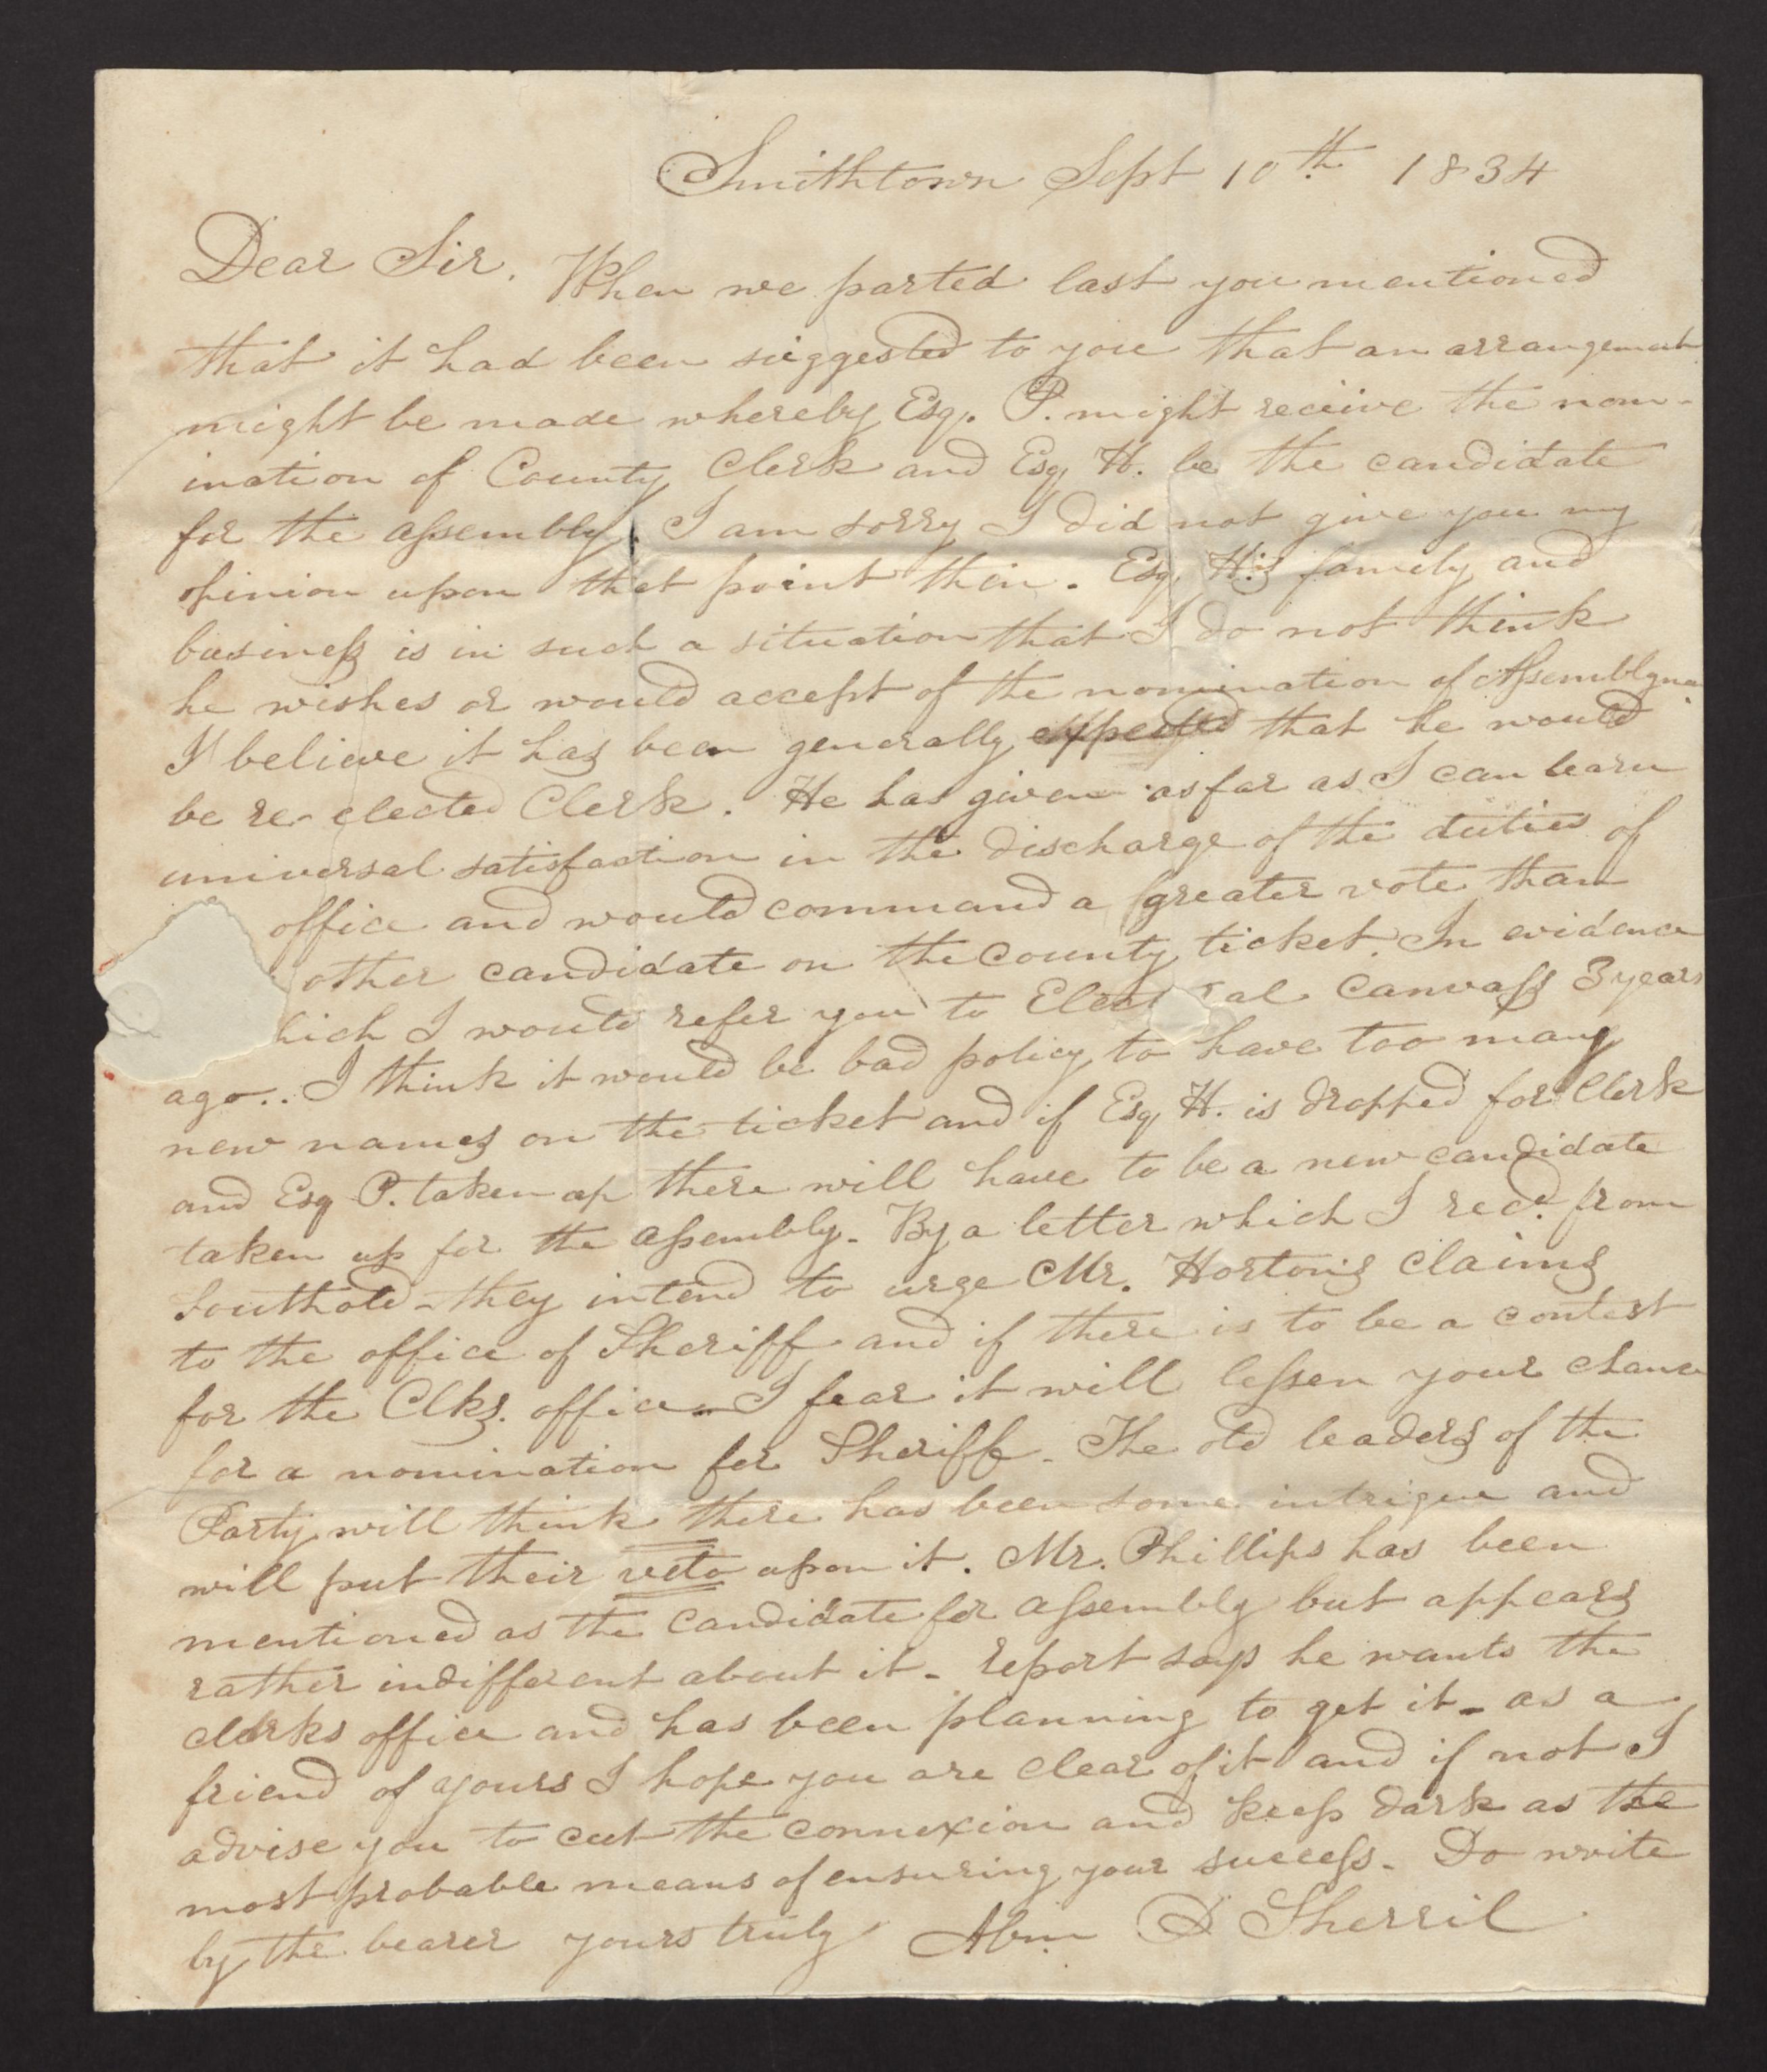 Smithtown Sept 10th 1834
Dear Sir. When we parted last you mentioned
that it had been suggested to you that an arrangement
might be made whereby Esq. P. might receive the nom-
ination of County Clerk and Esq H. be the candidate
for the assembly. I am sorry I did not give you my
opinion upon that point then. Esq. H's family and
business is in such a situation that I do not think
he wishes or would accept of the nomination of Assemblyma
I believe it has been generally expected that he would
be re-elected Clerk. He has given as far as I can learn
universal satisfaction in the discharge of the duties of
office and would command a greater vote than
other candidate on the County ticket. In evidence
hich I would refer you to Elect ral Canvass 3 years
ago.. I think it would be bad policy to have too many
new names on the ticket and if Esq H. is dropped for Clerk
and Esq P. taken up there will have to be a new candidate
taken up for the assembly. By a letter which I recd. from
Southold - they intend to urge Mr. Horton's claims
to the office of Sheriff and if there is to be a contest
for the Clks. office - I fear it will lessen your chance
for a nomination for Sheriff. The old leaders of the
Party will think there has been some intrigue and
will put their veto upon it. Mr. Phillips has been
mentioned as the candidate for assembly but appears
rather indifferent about it - report says he wants the
clerks office and has been planning to get it - as a
friend of yours I hope you are clear of it and if not I
advise you to cut the connexion and keep dark as the
most probable means of ensuring your success. Do write
by the bearer yours truly Abm D Sherril